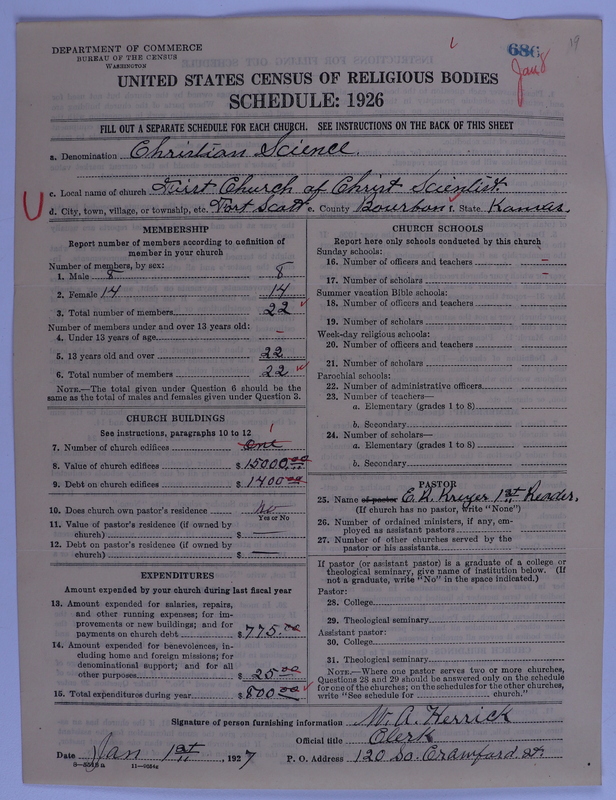 686
19
Jan 8
DEPARTMENT OF COMMERCE
BUREAU OF THE CENSUS
WASHINGTON
UNITED STATES CENSUS OF RELIGIOUS BODIES
SCHEDULE: 1926
FILL OUT A SEPARATE SCHEDULE FOR EACH CHURCH. SEE INSTRUCTIONS ON THE BACK OF THIS SHEET
a. Denomination Christian Science.
c. Local name of church First Church of Christ Scientist.
d. City, town, village, or township, etc. Fort Scott e. County Bourbon f. State Kansas.
MEMBERSHIP
Report number of members according to definition of
member in your church
Number of members, by sex:
1. Male 8 8
2. Female 14 14
3. Total number of members 22
Number of members under and over 13 years old:
4. Under 13 years of age –
5. 13 years old and over 22
6. Total number of members 22
NOTE.—The total given under Question 6 should be the
same as the total of males and females given under Question 3.
CHURCH BUILDINGS
See instructions, paragraphs 10 to 12
7. Number of church edifices One 1
8. Value of church edifices $ 15000.00
9. Debt on church edifices $ 1400.00
10. Does church own pastor's residence No
Yes or No
11. Value of pastor's residence (if owned by
church) $ —
12. Debt on pastor's residence (if owned by
church) $ —
EXPENDITURES
Amount expended by your church during last fiscal year
13. Amount expended for salaries, repairs,
and other running expenses; for im-
provements or new buildings; and for
payments on church debt $ 775.00
14. Amount expended for benevolences, in-
cluding home and foreign missions; for
denominational support; and for all
other purposes $ 25.00
15. Total expenditures during year $ 800.00
CHURCH SCHOOLS
Report here only schools conducted by this church
Sunday schools:
16. Number of officers and teachers –
17. Number of scholars –
Summer vacation Bible schools:
18. Number of officers and teachers
19. Number of scholars
Week-day religious schools:
20. Number of officers and teachers
21. Number of scholars
Parochial schools:
22. Number of administrative officers
23. Number of teachers—
a. Elementary (grades 1 to 8)
b. Secondary
24. Number of scholars—
a. Elementary (grades 1 to 8)
b. Secondary
PASTOR
25. Name of pastor E. R. Kreyer 1st Reader.
(If church has no pastor, write "None")
26. Number of ordained ministers, if any, em-
ployed as assistant pastors
27. Number of other churches served by the
pastor or his assistants
If pastor (or assistant pastor) is a graduate of a college or
theological seminary, give name of institution below. (If
not a graduate, write "No" in the space indicated.)
Pastor:
28. College
29. Theological seminary
Assistant pastor:
30. College
31. Theological seminary
NOTE.—Where one pastor serves two or more churches,
Questions 28 and 29 should be answered only on the schedule
for one of the churches; on the schedules for the other churches,
write "See schedule for church."
Signature of person furnishing information W. A. Herrick
Official title Clerk
Date Jan 1st, 1927 P. O. Address 120 So. Crawford St.